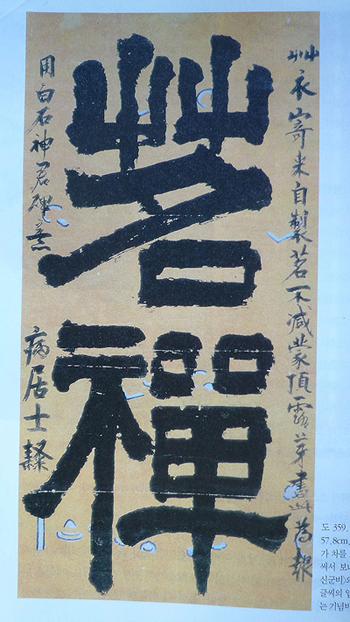 艸衣寄來自製茗不減蒙頂露芽書此為報
茗禪
用白石神君碑意
病居士隷
도 359.
57.8cm.
가 차를
써서 보내
신군비)의
글씨의
는 기념비